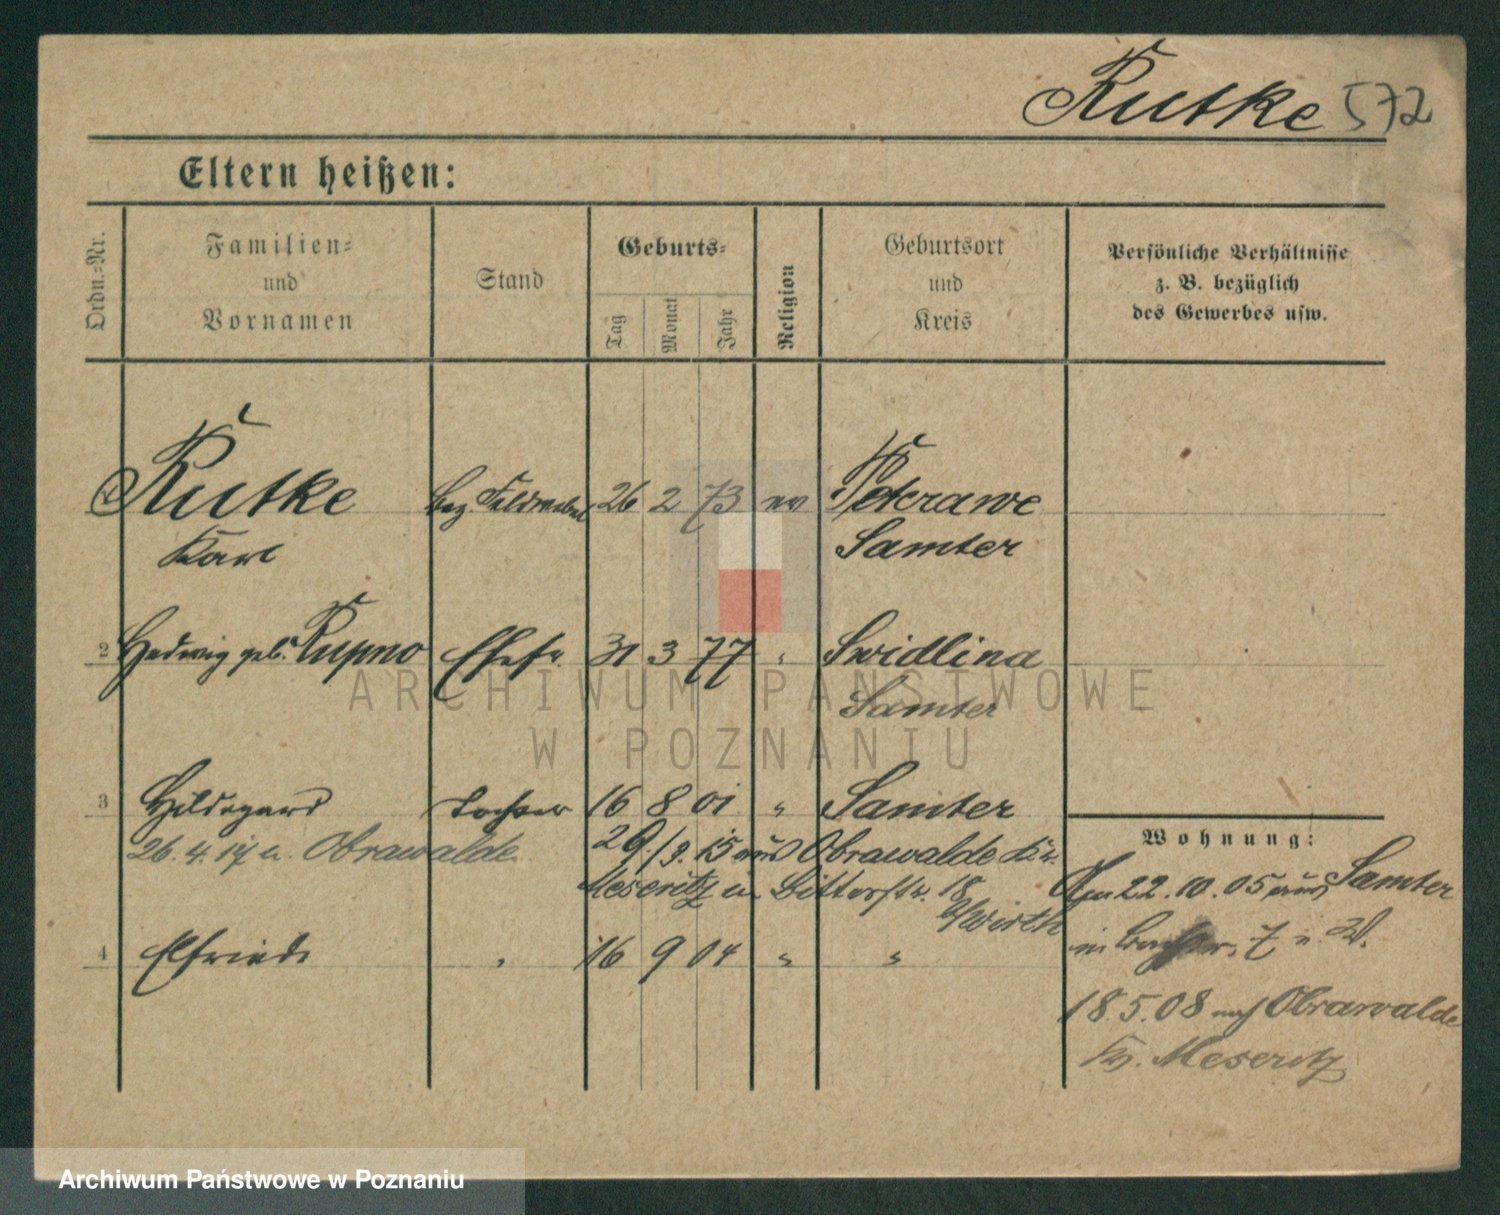 Rutke 572
Eltern heißen:
Ordn.=Nr.
Familien=
und
Vornamen
Stand
Geburts=
Tag
Monat
Jahr
Religion
Geburtsort
und
Kreis
Persönliche Verhältnisse
z. B. bezüglich
des Gewerbes usw.
Rutke Bez. Feldwebel 26 2 73 ev Peterawe
Karl Samter
2 Hedwig geb. Kupno Ehefr. 31 3 77 " Swidlina
Samter
3 Hildegard Tochter 16 8 01 " Samter
26.4.17 n. Obrawalde
29/3.15 aus Obrawalde Kr.
Meseritz in Bitterstr. 18
b/Wirth
4 Elfriede " 16 9 04 " "
Wohnung:
22.10.05 aus Samter
in 7 II.
18.5.08 nach Obrawalde
Kr. Meseritz
ARCHIWUM PAŃSTWOWE
W POZNANIU
Archiwum Państwowe w Poznaniu